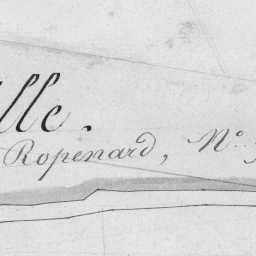 lle.
Ropenard, No.